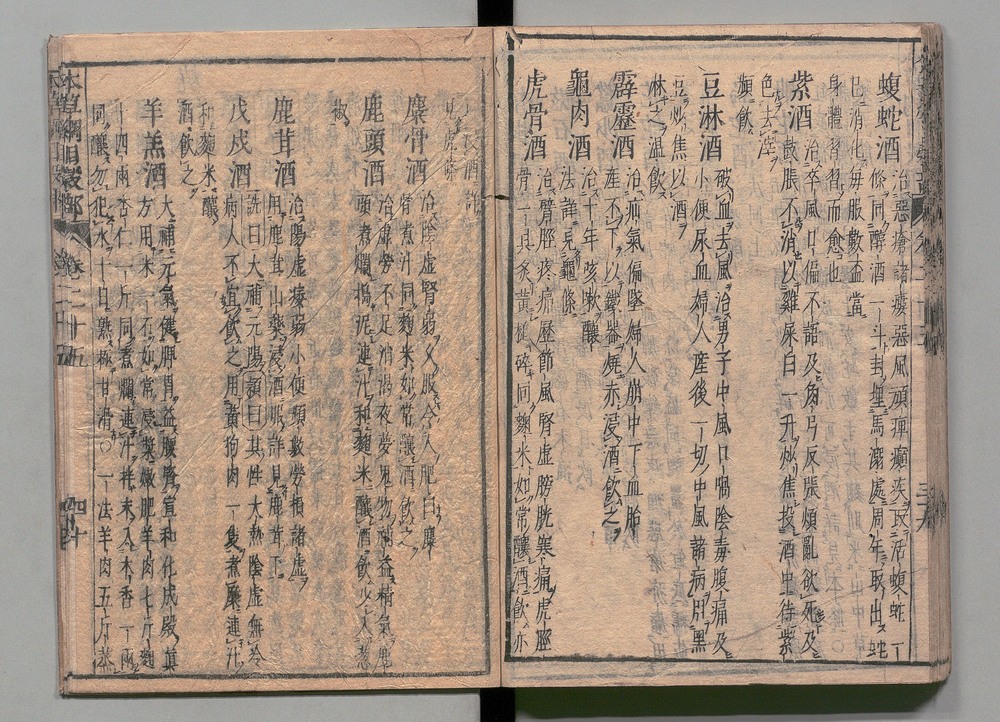 蝮蛇酒 治惡瘡諸瘻惡風頑痺癲疾取活蝮蛇一
條同醇酒一斗封埋馬溺處周年取出蛇
已消化毎服數盃當
身體習習而愈也
紫酒 治卒風口偏不語及角弓反張煩亂欲死及
鼓脹不消以雞屎白一升炒焦投酒中待紫
色去滓
頻飮
豆淋酒 破血去風治男子中風口喎陰毒腹痛及
小便尿血婦人産後一切中風諸病用黒
豆炒焦以酒
淋之温飮
霹靂酒 治疝氣偏墜婦人崩中下血胎
産不下以鐵器燒赤浸酒飮之
龜肉酒 治十年咳嗽釀
法詳見龜條
虎骨酒 治臂脛疼痛歴節風腎虚膀胱寒痛虎脛
骨一具炙黄槌碎同麹米如常釀酒飮亦
可浸酒詳
見虎條
麋骨酒 治陰虚腎弱久服令人肥白麋
骨煮汁同麹米如常釀酒飮之
鹿頭酒 治虚勞不足消渇夜夢鬼物補益精氣鹿
頭煮爛搗泥連汁和麹米釀酒飮少入葱
椒
鹿茸酒 治陽虚痿弱小便頻數勞損諸虚
用鹿茸山藥浸酒服詳見鹿茸下
戊戌酒 詵曰大補元陽頴曰其性大熱陰虚無冷
病人不宜飮之用黄狗肉一隻煮糜連汁
和麹米釀
酒飮之
羊羔酒 大補元氣健脾胃益腰腎宣和化成殿眞
方用米一石如常浸漿嫩肥羊肉七斤麹
十四兩杏仁一斤同煮爛連汁拌末入木香一兩
同釀勿犯水十日熟極甘滑○一法羊肉五斤蒸
本草綱目穀部 卷二十五